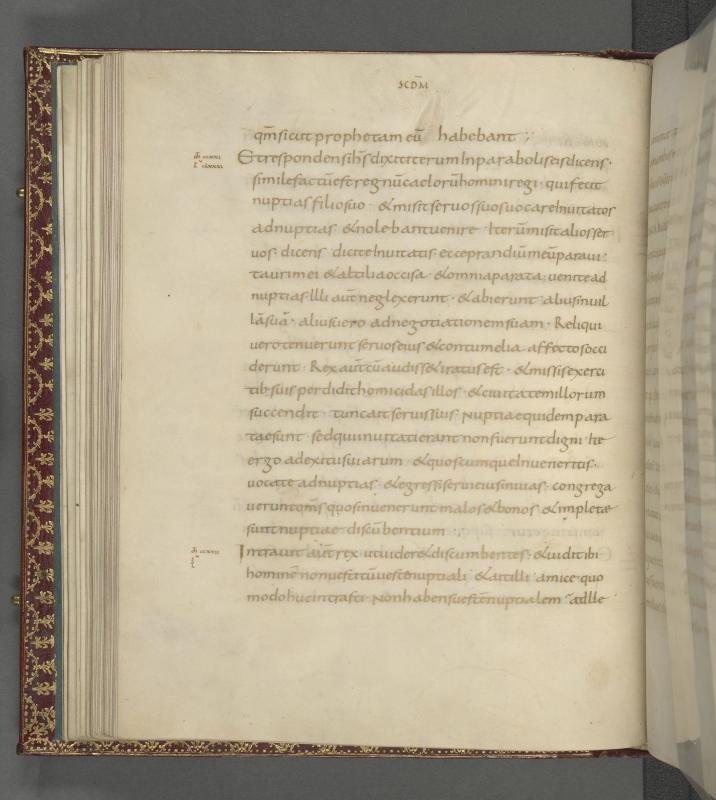 SCDM̄
qm̄ sicut prophetam eū habebant
Et respondens ihs̄ dixit iterum In parabolis eis dicens ·
simile factū est regnū caelorū homini regi · qui fecit
nuptias filio suo · & misit seruos suos uocare Inuitatos
ad nuptias & nolebant uenire · Iterū misit alios ser
uos · dicens dicite Inuitatis · ecce prandiū meū paraui ·
tauri mei & altilia occisa · & omnia parata · uenite ad
nuptias · Illi aut̄ neglexerunt · & abierunt alius in uil
lā suā · alius uero ad negotiationem suam · Reliqui
uero tenuerunt seruos eius & contumelia affectos occi
derunt · Rex aut̄ cū audiss& iratus est · & missis exerci
tib· suis perdidit homicidas illos · & ciuitatem illorum
succendit · tunc ait seruis suis · Nuptiae quidem para
tae sunt · sed qui inuitati erant non fuerunt digni · Ite
ergo ad exitus uiarum · & quoscumque Inueneritis ·
uocate ad nuptias · & egressi serui eius in uias · congrega
uerunt om̄s quos inuenerunt malos & bonos · & impletae
sunt nuptiae discūbentium
Intrauit aut̄ rex · ut uider& discumbentes · & uidit ibi
hominē non uestitū ueste nuptiali · & ait illi · amice quo
modo huc intrasti · Non habens uestē nuptialem · at Ille